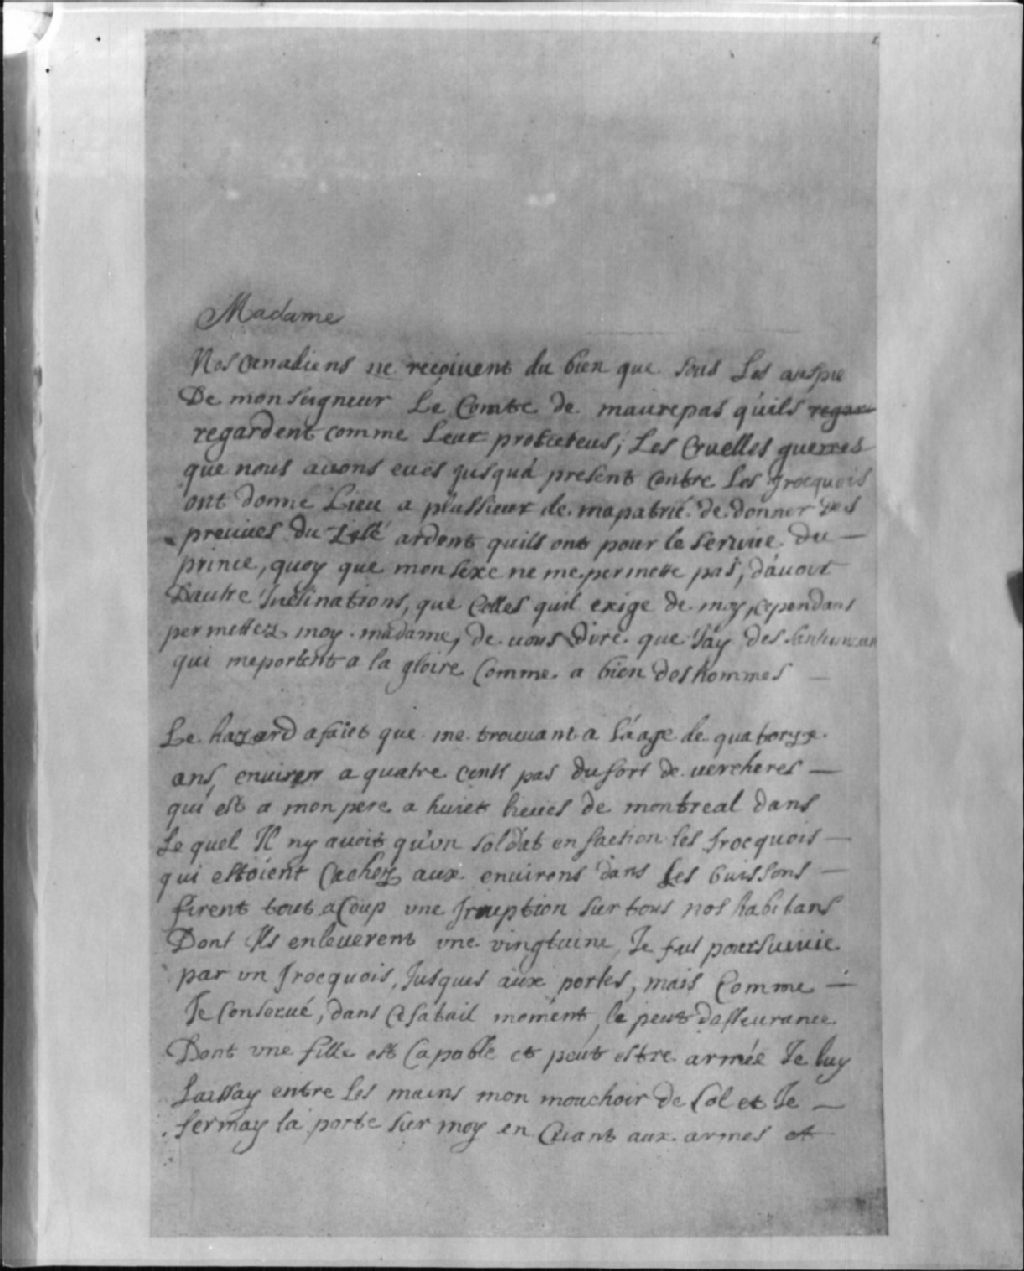 Madame
Nos Canadiens ne reçoivent du bien que sous Les auspie
De monseigneur Le Comte de maurepas quils regar
regardent comme Leur protecteus, Les Cruelles guerres
que nous auons eues jusqua present contre Les Jrocquois
ont donné Lieu a plussieur de mapatrie de donner des
preuues du Zele ardent quils ont pour le seruice du
prince, quoy que mon sexe ne me permette pas, dauoir
Dautre Jnclinations, que Celles quil exige de moy, cependans
permettez moy madame, de uous dire que Jay des
qui meportent a la gloire Comme a bien des hommes
Le hazard afaiet que me trouuant a Laage de quatorze
ans, enuiron a quatre cents pas du fort de vercheres
qui est a mon pere a huiet lieues de montreal dans
Le quel Il ny auoit qu'un soldat en faction les Jrocquois
qui estoient Cachez aux environs dans les buissons
firent tout aCoup une Jrruption sur tous nos habitans
Dont Ils enleuerent une vingtaine, Je fus poursuiuie
par un Jrocquois, Jusques aux portes, mais Comme
Je conserué, dans Ce fatail moment, le peut dasseurance
Dont une fille est Capable et peut estre armée Je luy
Laissay entre les mains mon mouchoir de Col et Je
fermay la porte sur moy en Criant aux armes et